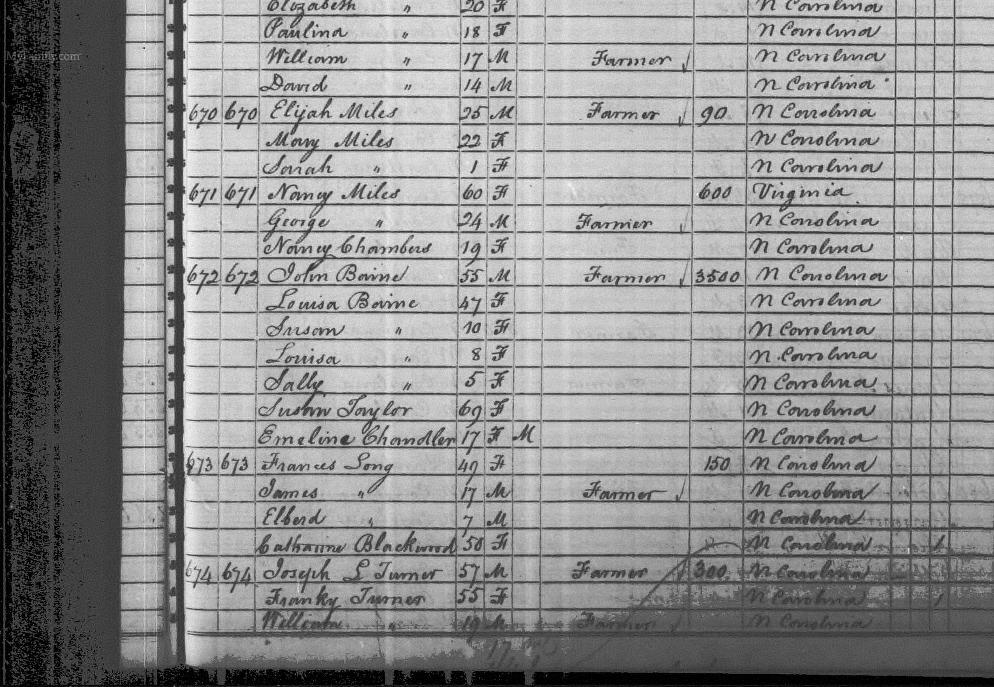 Elizabeth " 20 F N Carolina
Paulina " 18 F N Carolina
MyFamily.com
William " 17 M Farmer N Carolina
David " 14 M N Carolina
670 670 Elijah Miles 25 M Farmer 90 N Carolina
Mary Miles 22 F N Carolina
Sarah " 1 F N Carolina
671 671 Nancy Miles 60 F 600 Virginia
George " 24 M Farmer N Carolina
Nancy Chambers 19 F N Carolina
672 672 John Baine 55 M Farmer 3500 N Carolina
Louisa Baine 47 F N Carolina
Susan " 10 F N Carolina
Louisa " 8 F N Carolina
Sally " 5 F N Carolina
Susan Taylor 69 F N Carolina
Emeline Chandler 17 F M N Carolina
673 673 Frances Long 49 F 150 N Carolina
James " 17 M Farmer N Carolina
Elberd " 7 M N Carolina
Catharine Blackwood 50 F N Carolina 1
674 674 Joseph L Turner 57 M Farmer 300 N Carolina
Franky Turner 55 F N Carolina 1
William " 19 M Farmer N Carolina
17